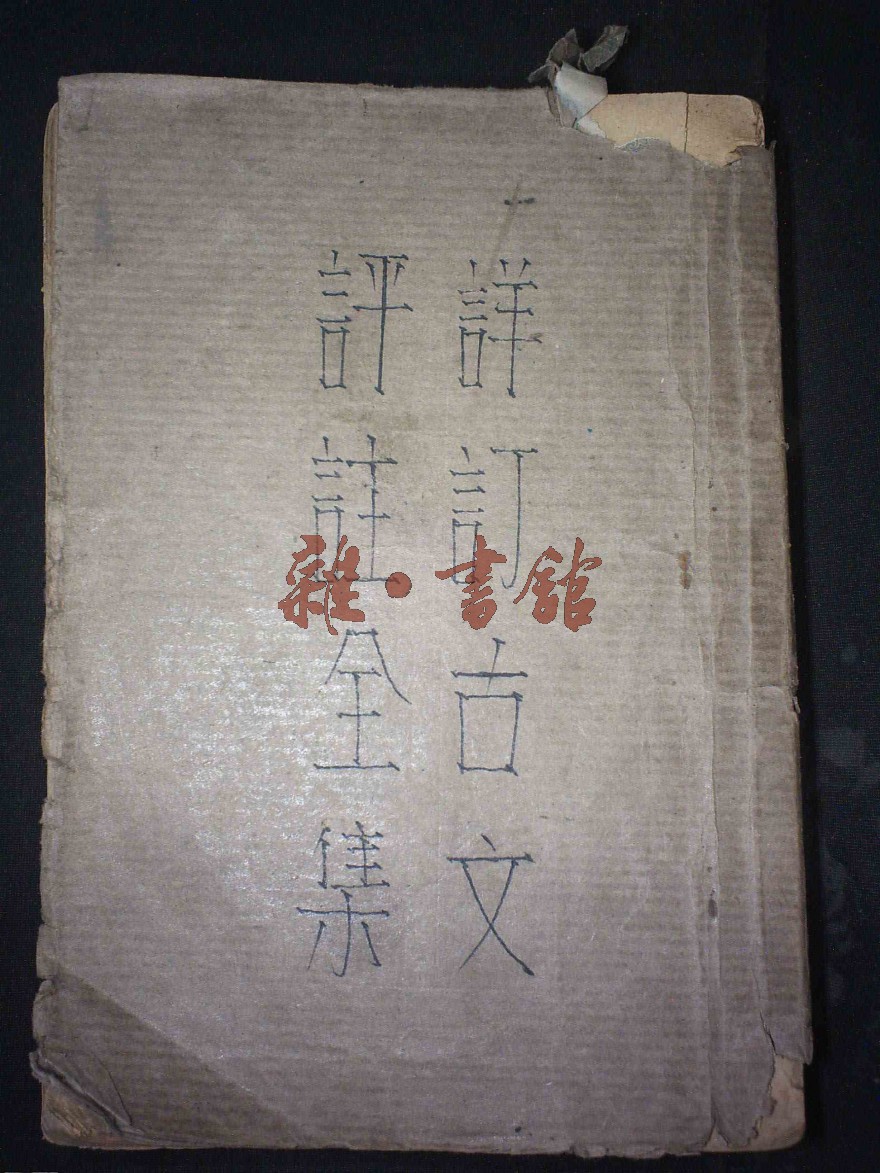 詳訂古文
評註全集
雜·書館